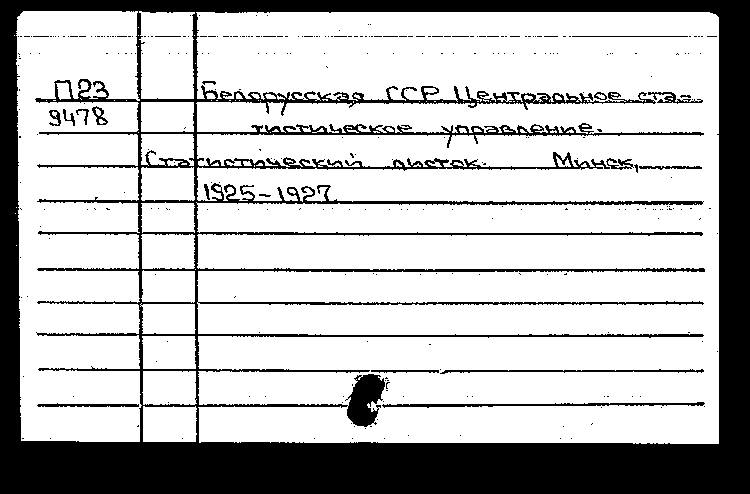 П23 Белорусская ССР Центральное ста-
9478 тистическое управление.
Статистический листок. Минск,
1925-1927